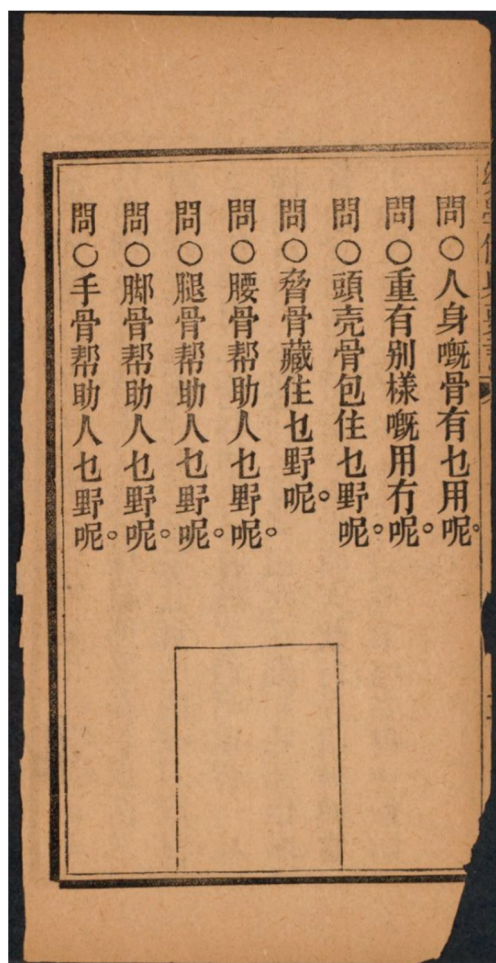 問○人身嘅骨有乜用呢。
問○重有别樣嘅用冇呢。
問○頭壳骨包住乜野呢。
問○脅骨藏住乜野呢。
問○腰骨帮助人乜野呢。
問○腿骨帮助人乜野呢。
問○脚骨帮助人乜野呢。
問○手骨帮助人乜野呢。